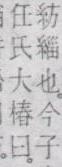 紡緇也。今子
任氏大椿曰。